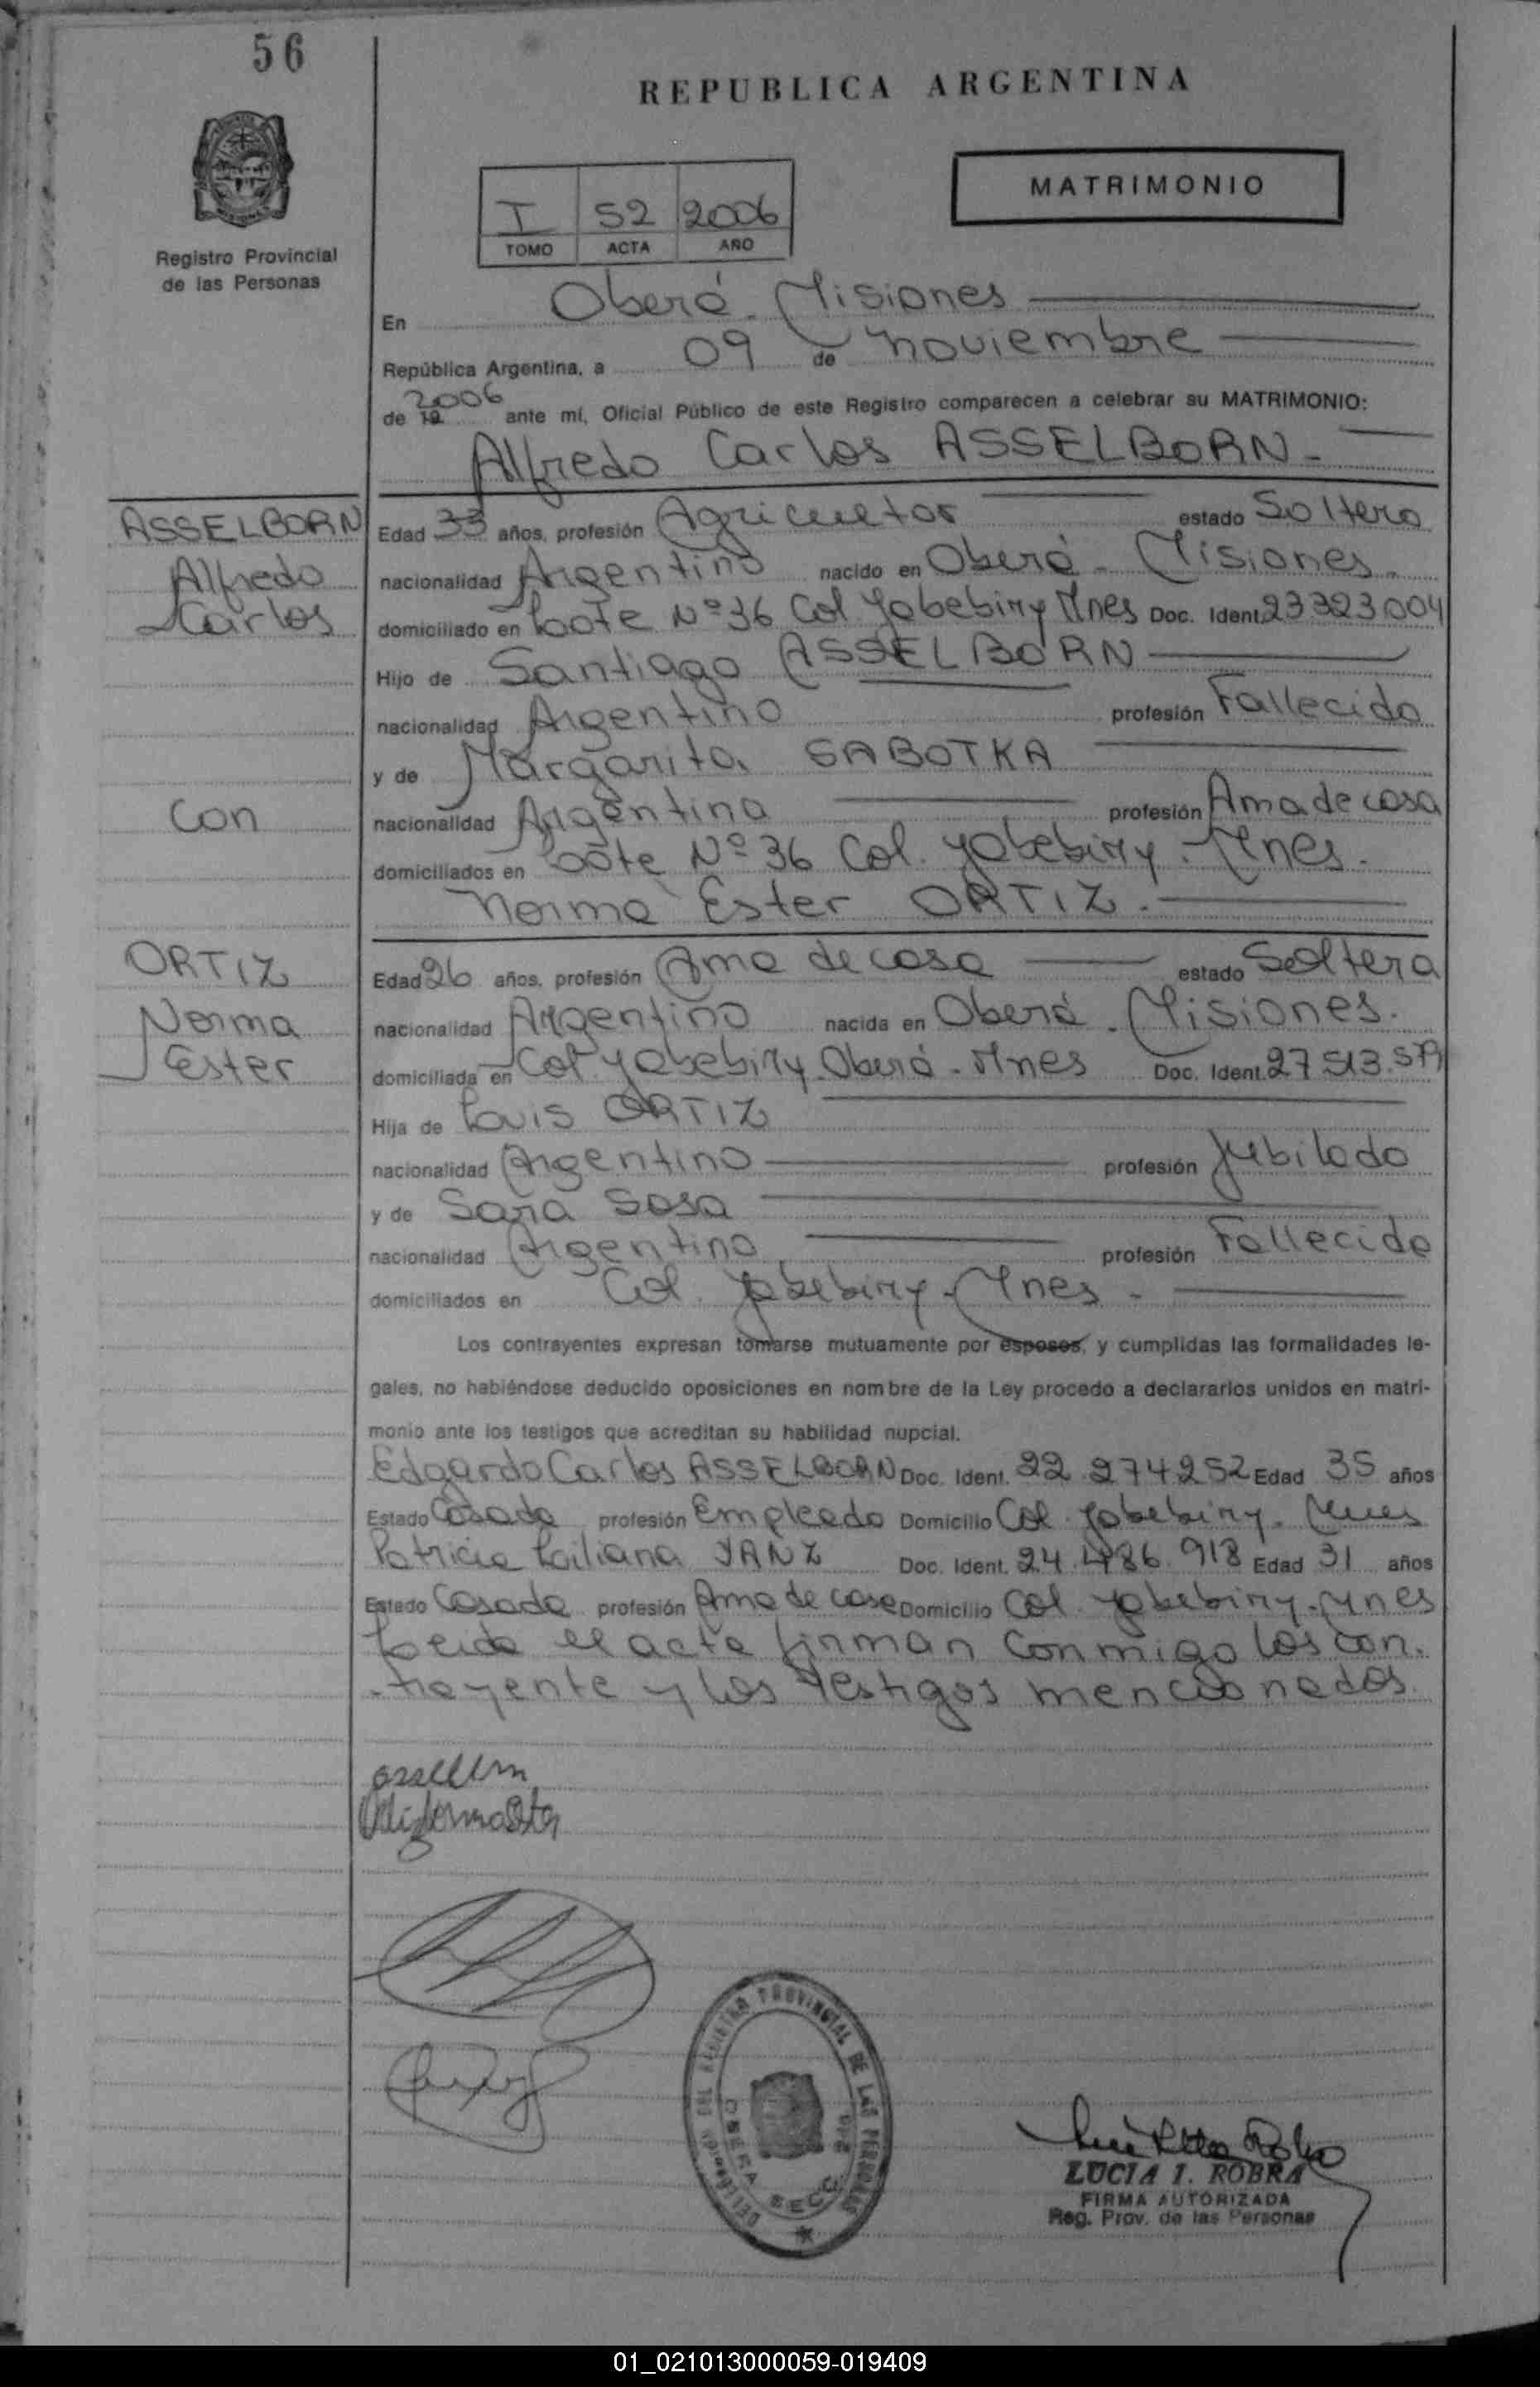 56
REPUBLICA ARGENTINA
MATRIMONIO
I 52 2006
TOMO ACTA AÑO
Registro Provincial
de las Personas
En Oberá - Misiones
República Argentina, a 09 de noviembre
de 19 2006 ante mí, Oficial Público de este Registro comparecen a celebrar su MATRIMONIO:
Alfredo Carlos ASSELBORN -
ASSELBORN
Alfredo
Carlos
Edad 33 años, profesión Agricultor estado Soltero
nacionalidad Argentino nacido en Oberá - Misiones -
domiciliado en Lote Nº 36 Col Yabebiry Mnes Doc. Ident. 23323004
Hijo de Santiago ASSELBORN
nacionalidad Argentino profesión Fallecido
y de Margarita SABOTKA
Con
nacionalidad Argentina profesión Ama de casa
domiciliados en Lote Nº 36 Col. Yabebiry - Mnes.
Norma Ester ORTIZ -
ORTIZ
Norma
Ester
Edad 26 años, profesión Ama de casa estado Soltera
nacionalidad Argentino nacida en Oberá - Misiones.
domiciliada en Col. Yabebiry - Oberá - Mnes Doc. Ident. 27.513.
Hija de Luis ORTIZ
nacionalidad Argentino profesión Jubilado
y de Sara Sosa
nacionalidad Argentina profesión Fallecida
domiciliados en Col. Yabebiry - Mnes -
Los contrayentes expresan tomarse mutuamente por esposos, y cumplidas las formalidades le-
gales, no habiéndose deducido oposiciones en nombre de la Ley procedo a declararlos unidos en matri-
monio ante los testigos que acreditan su habilidad nupcial.
Edgardo Carlos ASSELBORN Doc. Ident. 22 274252 Edad 35 años
Estado Casado profesión Empleado Domicilio Col. Yabebiry - Mnes
Patricia Liliana YANZ Doc. Ident. 24.486.918 Edad 31 años
Estado Casada profesión Ama de casa Domicilio Col. Yabebiry - Mnes
Leida el acta firman conmigo los con-
-trayente y los testigos mencionados.
DELEGACION DEL REGISTRO PROVINCIAL DE LAS PERSONAS
OBERA SECC.
LUCIA I. ROBRA
FIRMA AUTORIZADA
Reg. Prov. de las Personas
01_021013000059-019409